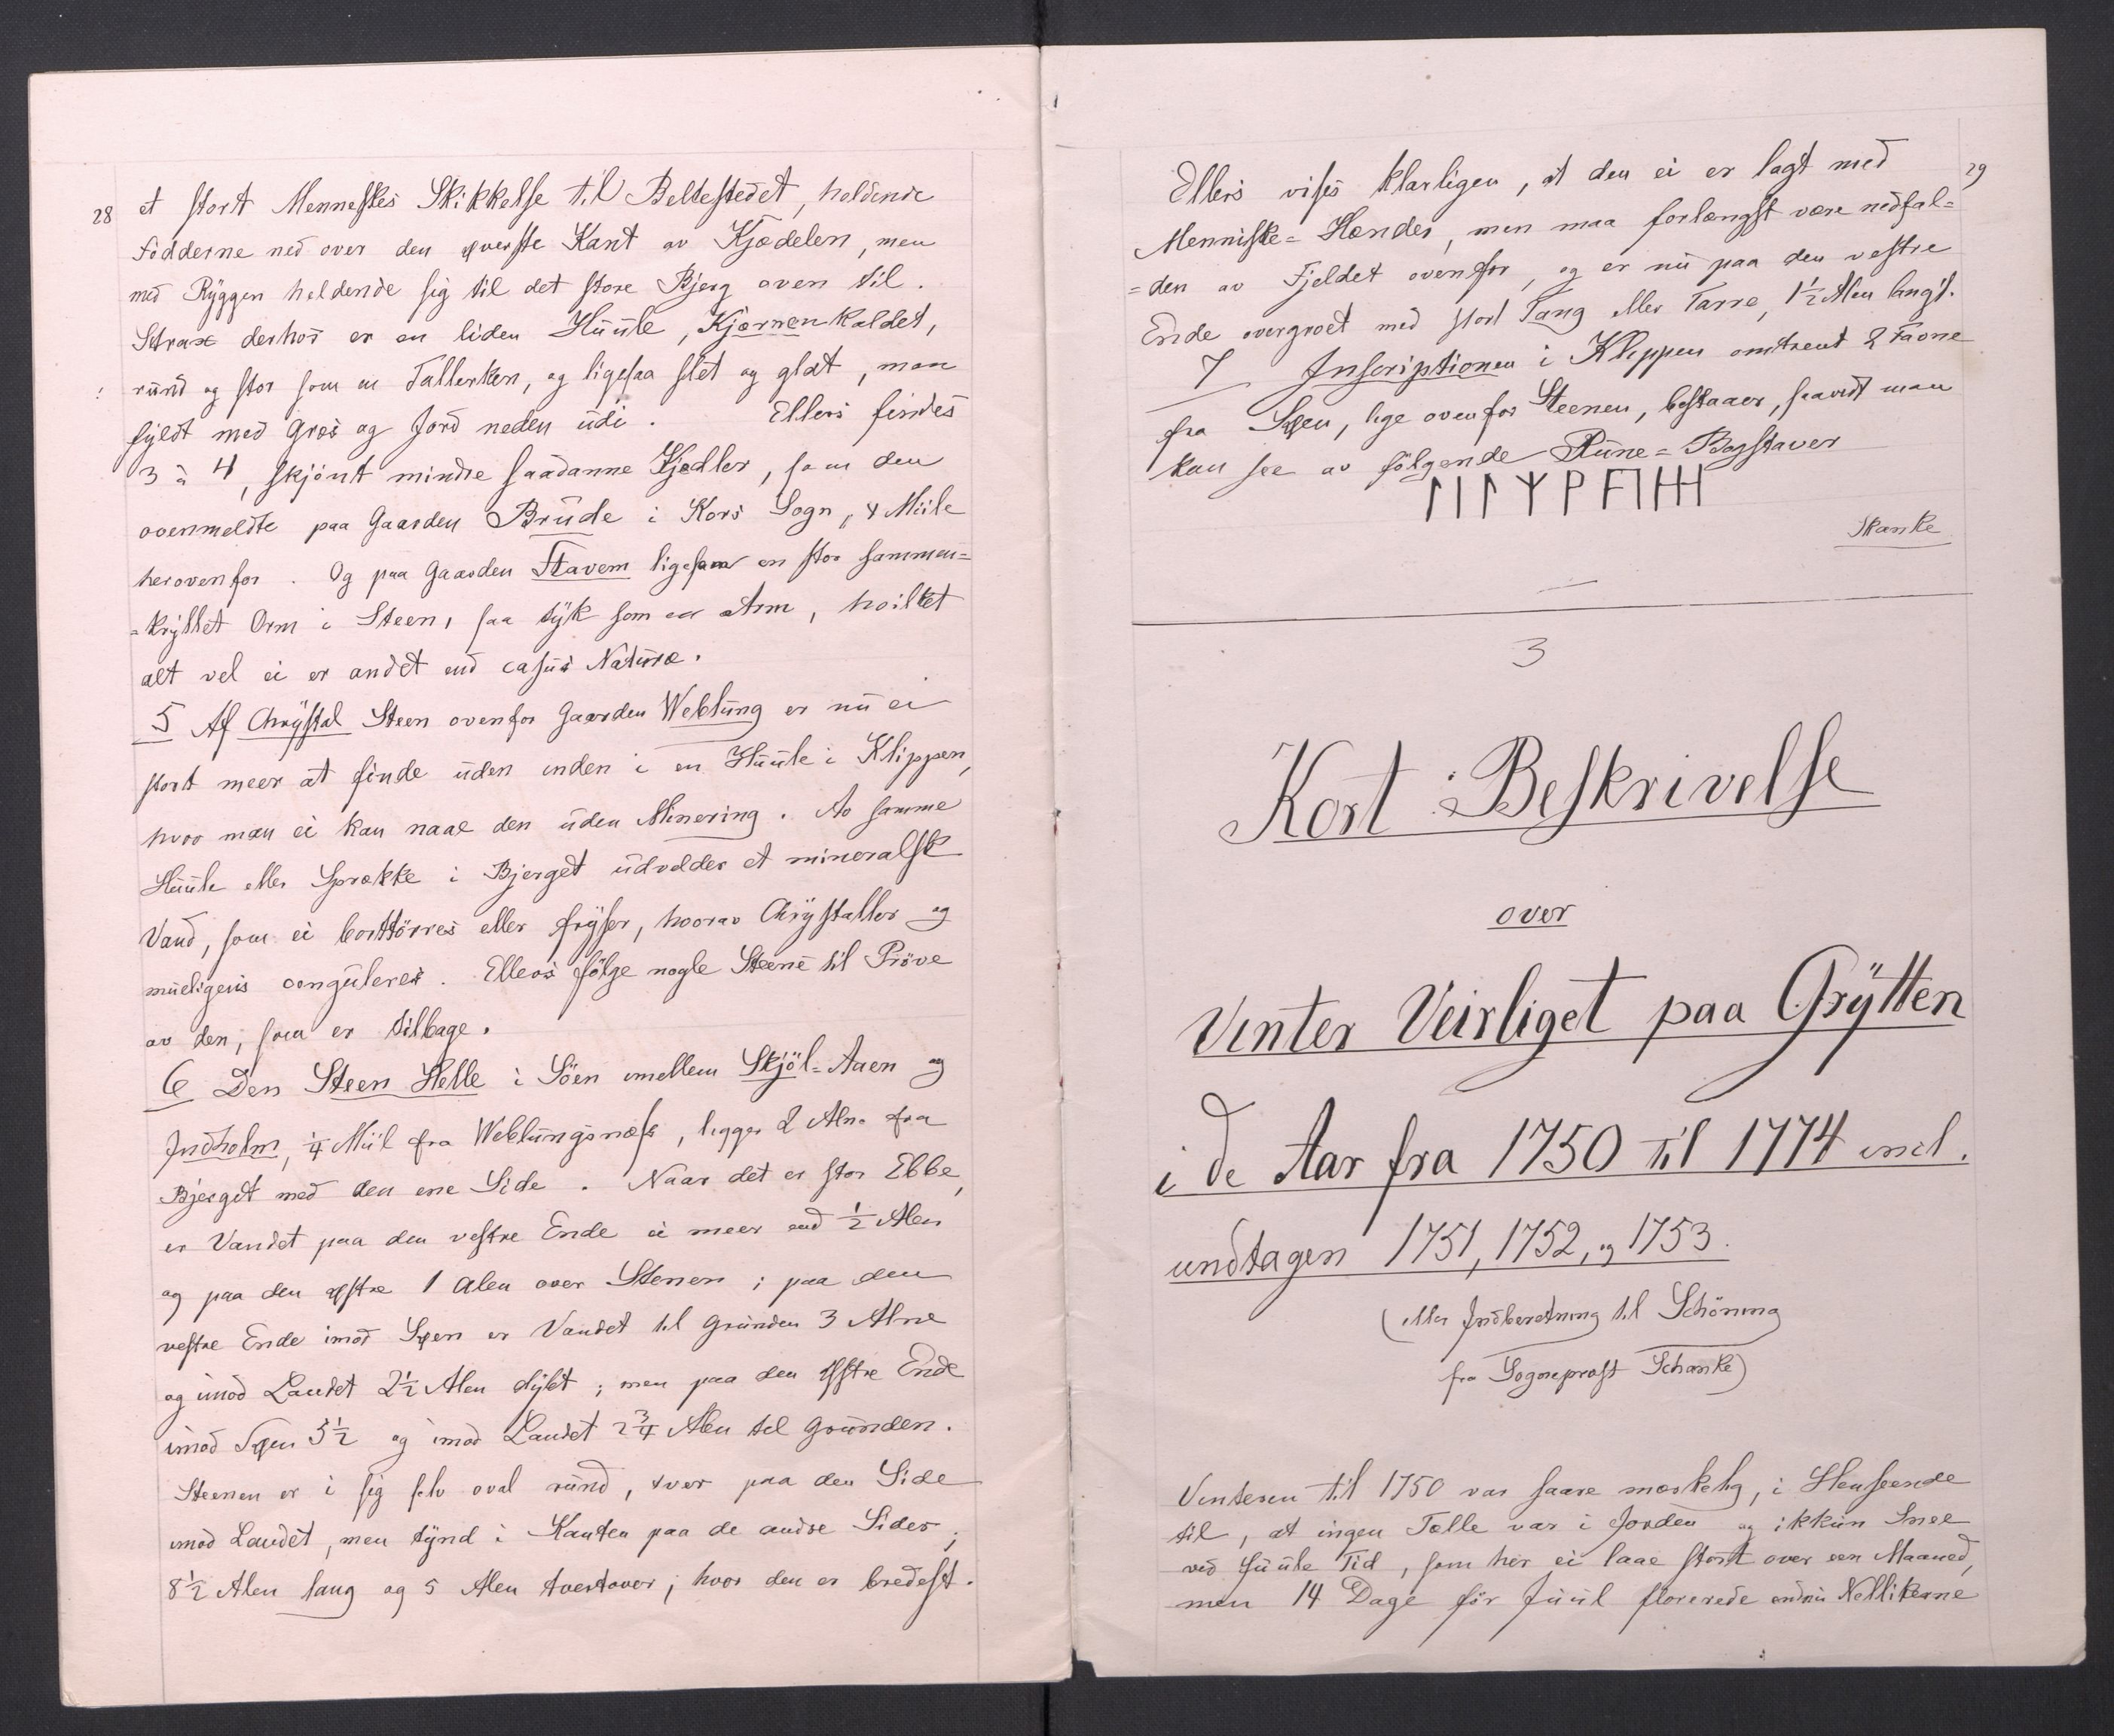 28
et stort Menneskes Skikkelse til Beltestedet, heldende
Födderne ned over den øverste Kant av Kjædelen, men
med Ryggen heldende sig til det store Bjerg oven til.
Strax derhos er en liden Huule, Kjærnen kaldet,
rund og stor som en Tallerken, og ligesaa slet og glat, men
fyldt med Græs og Jord neden udi. Ellers findes
3 à 4, skjönt mindre saadanne Kjedler, som den
ovenmeldte paa Gaarden Brude i Kors Sogn, 4 Miile
herovenfor. Og paa Gaarden Flavem ligesaa en stor sammen=
=krÿllet Orm i Steen, saa tÿk som en Arm, hvilket
alt vel ei er andet end casus Naturæ.
5 Af Chrÿstal Steen ovenfor Gaarden Weblung er nu ei
stort meer at finde uden inden i en Huule i Klippen,
hvor man ei kan naae den uden Minering. Av samme
Huule eller Sprække i Bjerget udvelder et mineralsk
Vand, som ei borttörres eller frÿser, hvorav Chrÿstaller og
mueligens conguleres. Ellers fölge nogle Steene til Pröve
av den, som er tilbage.
6 Den Steen Helle i Söen imellem Skjöl=Aaen og
Indholm, 1/4 Miil fra Weblungsnæss, ligger 2 Alne fra
Bjerget med den ene Side. Naar det er stor Ebbe,
er Vandet paa den vestre Ende ei meer end 1/2 Alen
og paa den østre 1 Alen over Stenen; paa den
vestre Ende imod Søen er Vandet til Grunden 3 Alne
og imod Landet 2 1/2 Alen dÿbt; men paa den Østre Ende
imod Søen 3 1/2 og imod Landet 2 3/4 Alen til Grunden.
Steenen er i sig selv oval rund, tver paa den Side
imod Landet, men tÿnd i Kanten paa de andre Sider;
8 1/2 Alen lang og 5 Alen tvertover; hvor den er bredest.
29
Ellers vises klarligen, at den ei er lagt med
Menniske=Hænder, men maa forlængst være nedfal=
=den av Fjeldet ovenfor, og er nu paa den vestre
Ende overgroet med stort Tang eller Tarre, 1 1/2 Alen langt.
7 Inscriptionen i Klippen omtrent 2 Favne
fra Søen, lige ovenfor Steenen, bestaaer, saavidt man
kan see av fölgende Rune=Bogstaver
ᛚᛁᛚᛉᚹᚠᛖᚺᚺ
Skanke
3
Kort Beskrivelse
over
Vinter Veirliget paa Grÿtten
i de Aar fra 1750 til 1774 incl.
undtagen 1751, 1752, og 1753.
(eller Indberetning til Schöning
fra Sogneprest Schanke)
Vinteren til 1750 var saare mærkelig, i Henseende
til, at ingen Tælle var i Jorden og ikkun Snee
ved Juule Tid, som her ei laae stort over een Maaned,
men 14 Dage för Juul florerede endnu Nellikerne